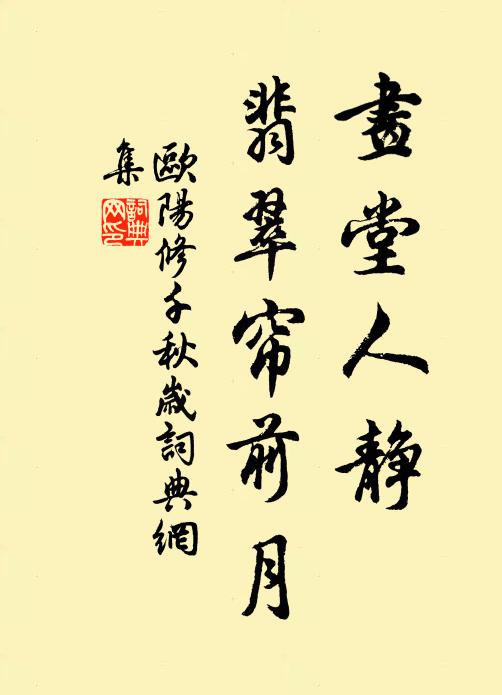 畫堂人靜
翡翠帘前月
歐陽修千秋歲詞典網
集
詞典
网印